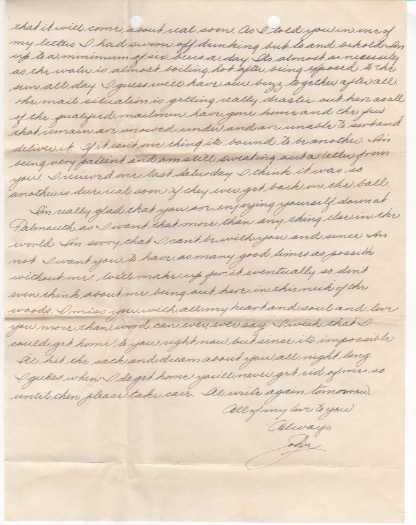 that it will come about real soon. As I told you in one of
my letters I had sworn off drinking but lo and behold Im
up to a minimum of six beers a day. Its almost a necessity
as the water is almost boiling hot after being exposed to the
sun all day. I guess we'll have our buzz together after all.
The mail situation is getting really drastic out here as all
of the qualified mailmen have gone home and the few
that remain are snowed under and are unable to sort and
deliver it. If it isn't one thing its bound to be another. Im
being very patient and am still sweating out a letter from
you. I received one last Saturday I think it was so
another is due real soon if they ever get back on the ball.
Im really glad that you are enjoying yourself down at
Falmouth as I want that more than any thing else in the
world. Im sorry that I cant be with you and since Im
not I want you to have as many good times as possible
without me. We'll make up for it eventually so dont
even think about me being out here in this neck of the
woods. I miss you with all my heart and soul and love
you more than word can ever, ever say. I wish that I
could get home to you right now but since its impossible
Al hit the sack and dream about you all night long.
I guess when I do get home you'll never get rid of me so
until then please take care. Al write again tomorrow
All of my love to you
Always
John